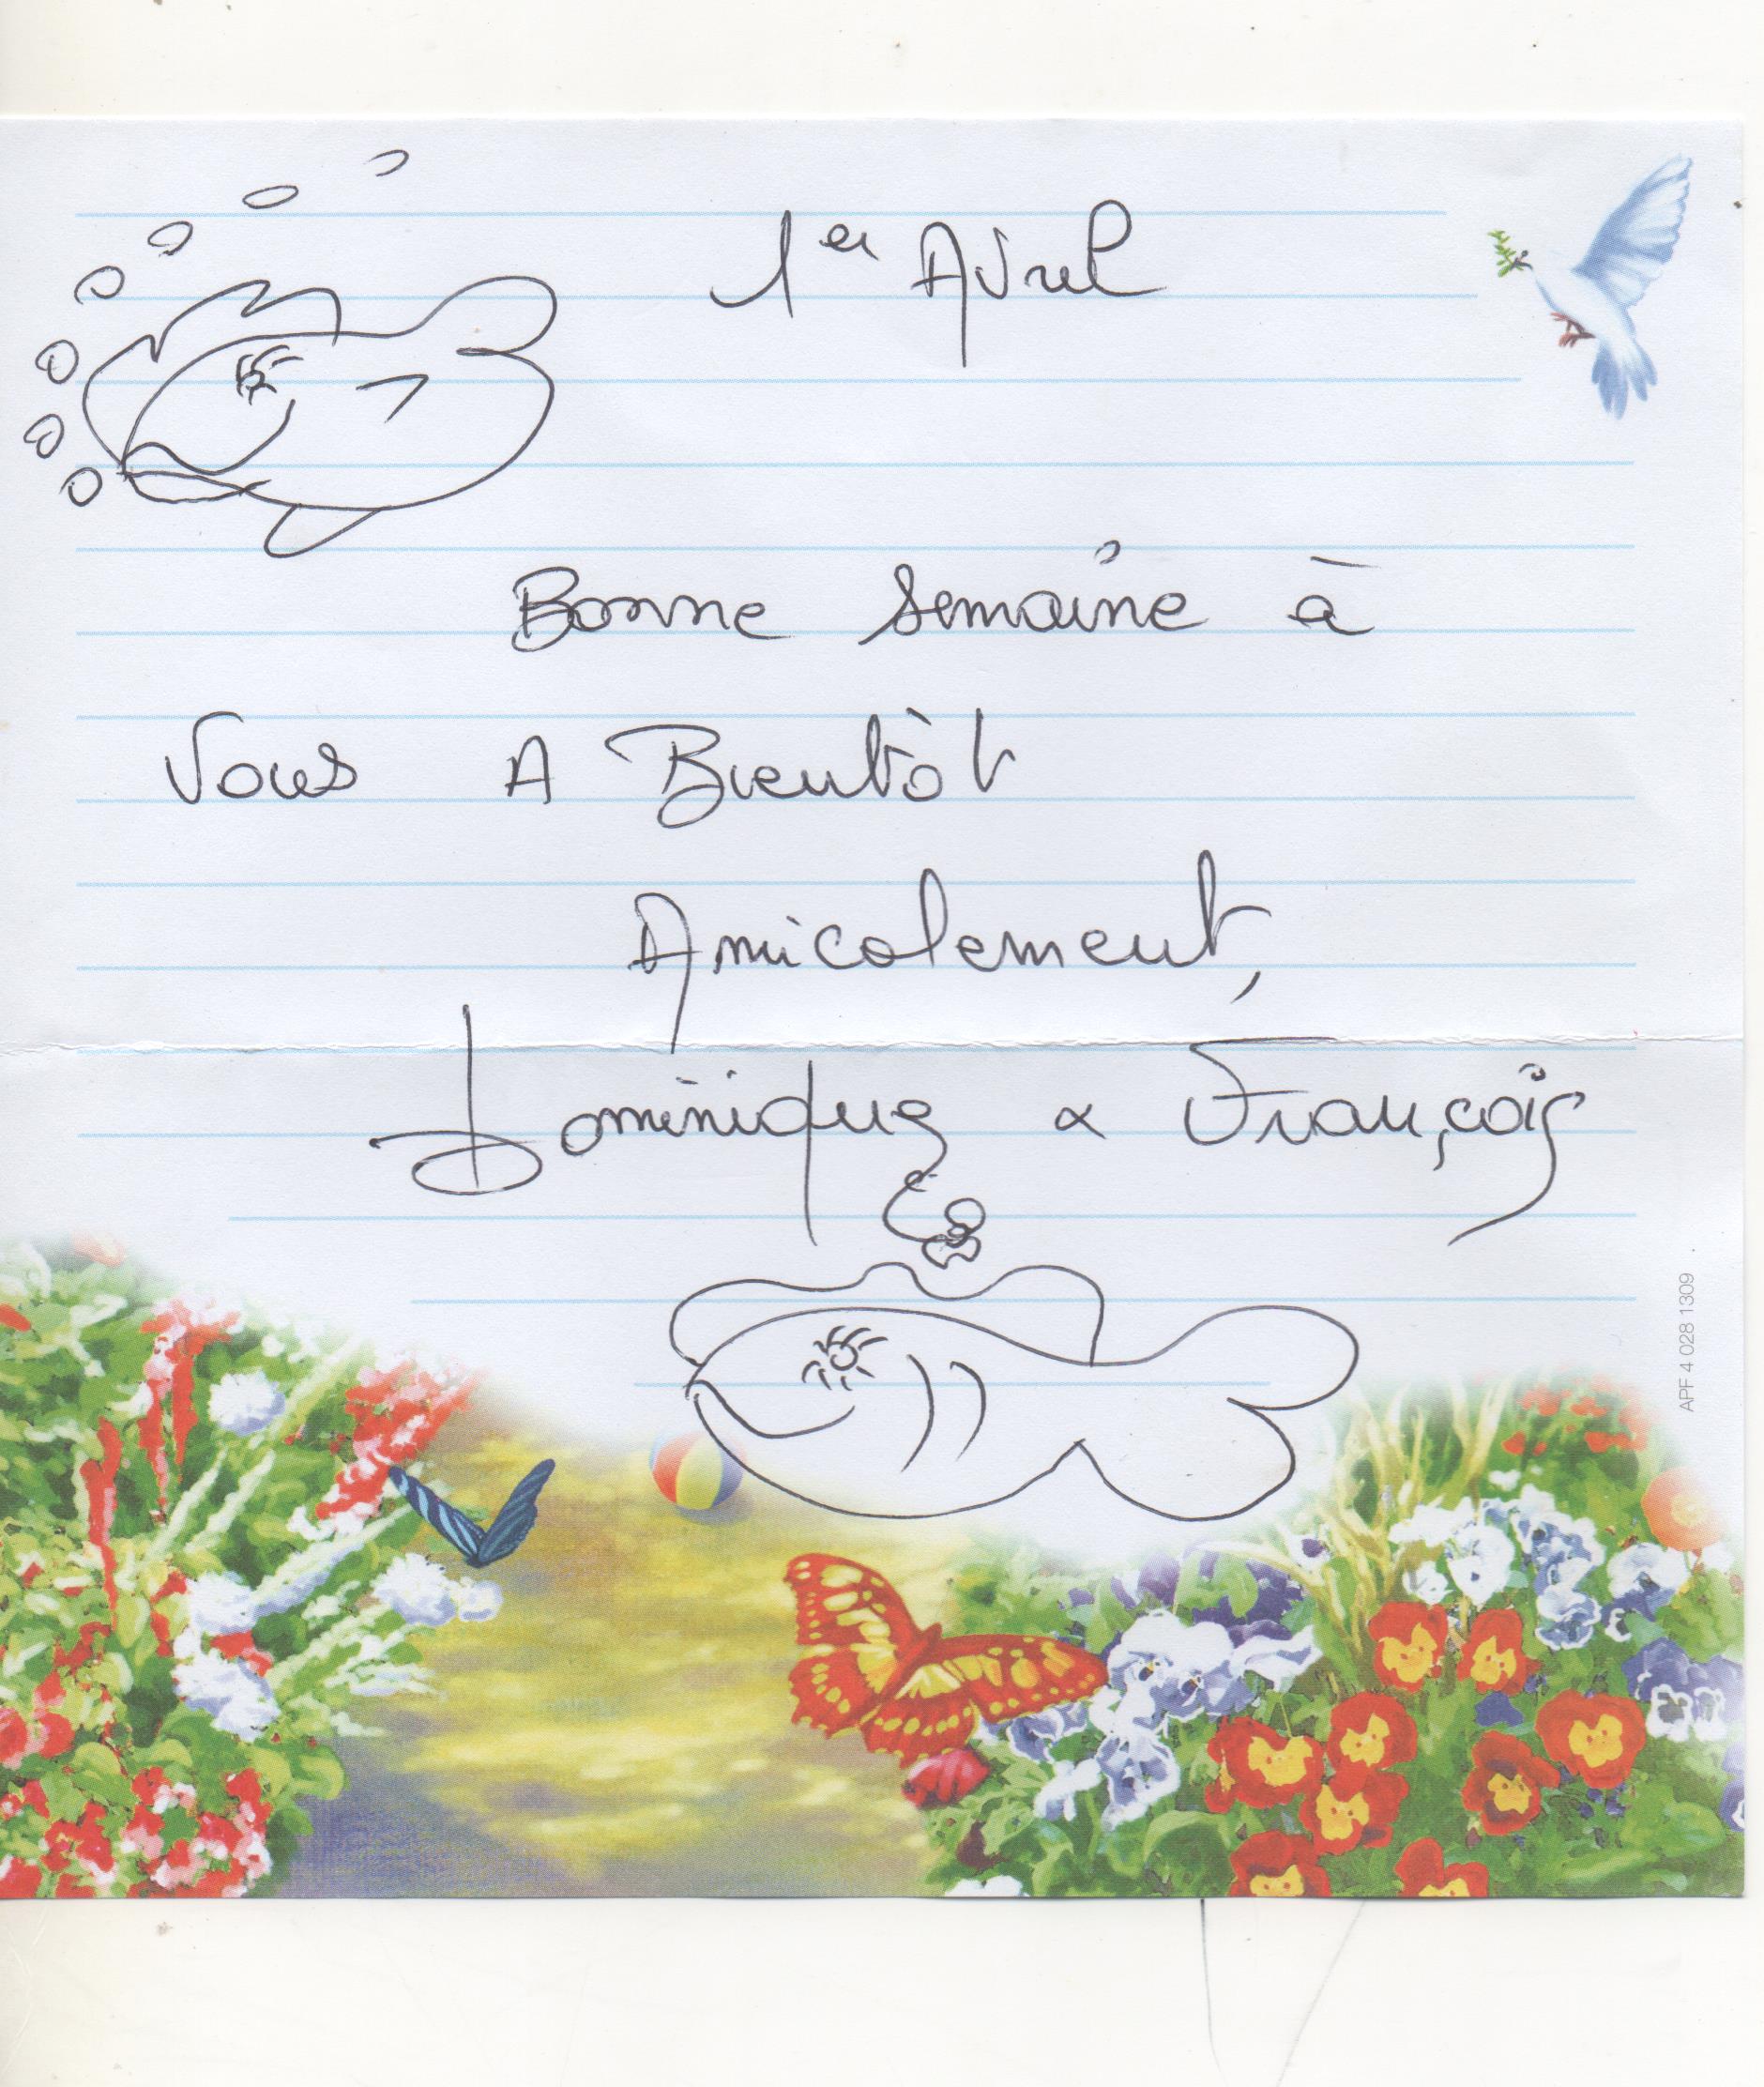 1er Avril
Bonne semaine à
Vous A Bientôt
Amicalement,
Dominique & François
APF 4 028 1309